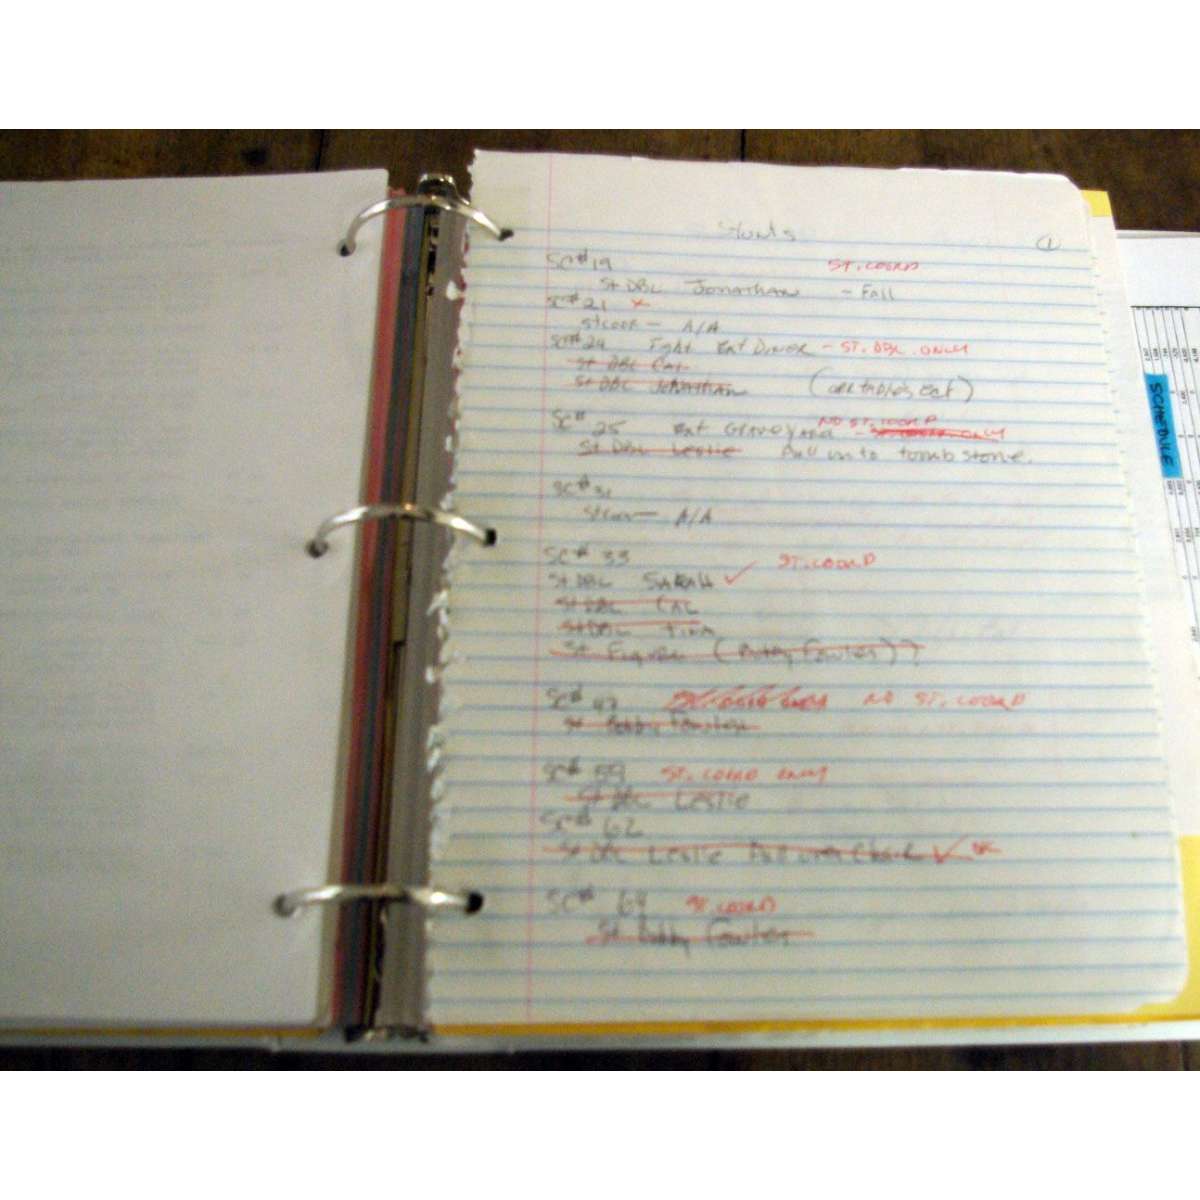 Stunts
1
SC# 19 ST. COORD
St DBL Jonathan - Fall
SC# 21 x
stcoor - A/A
SC# 24 Fight Ext Diner - ST. DBL. ONLY
St DBL Cal
St DBL Jonathan
SC# 25 Ext Graveyard NO ST. COORD
St DBL Leslie Pull into tombstone.
SC# 31
stcoor - A/A
SC# 33 ST. COORD
St DBL Sarah ✓
St DBL Cal
St DBL Tina
St Figures (Bobby Fowler)?
SC# 47 NO ST. COORD
St Bobby Fowler
SC# 59 ST. COORD ONLY
St DBL Leslie
SC# 62
St DBL Leslie Pull over Chair ✓ OK
SC# 64 ST. COORD
St Bobby Fowler
SCHEDULE